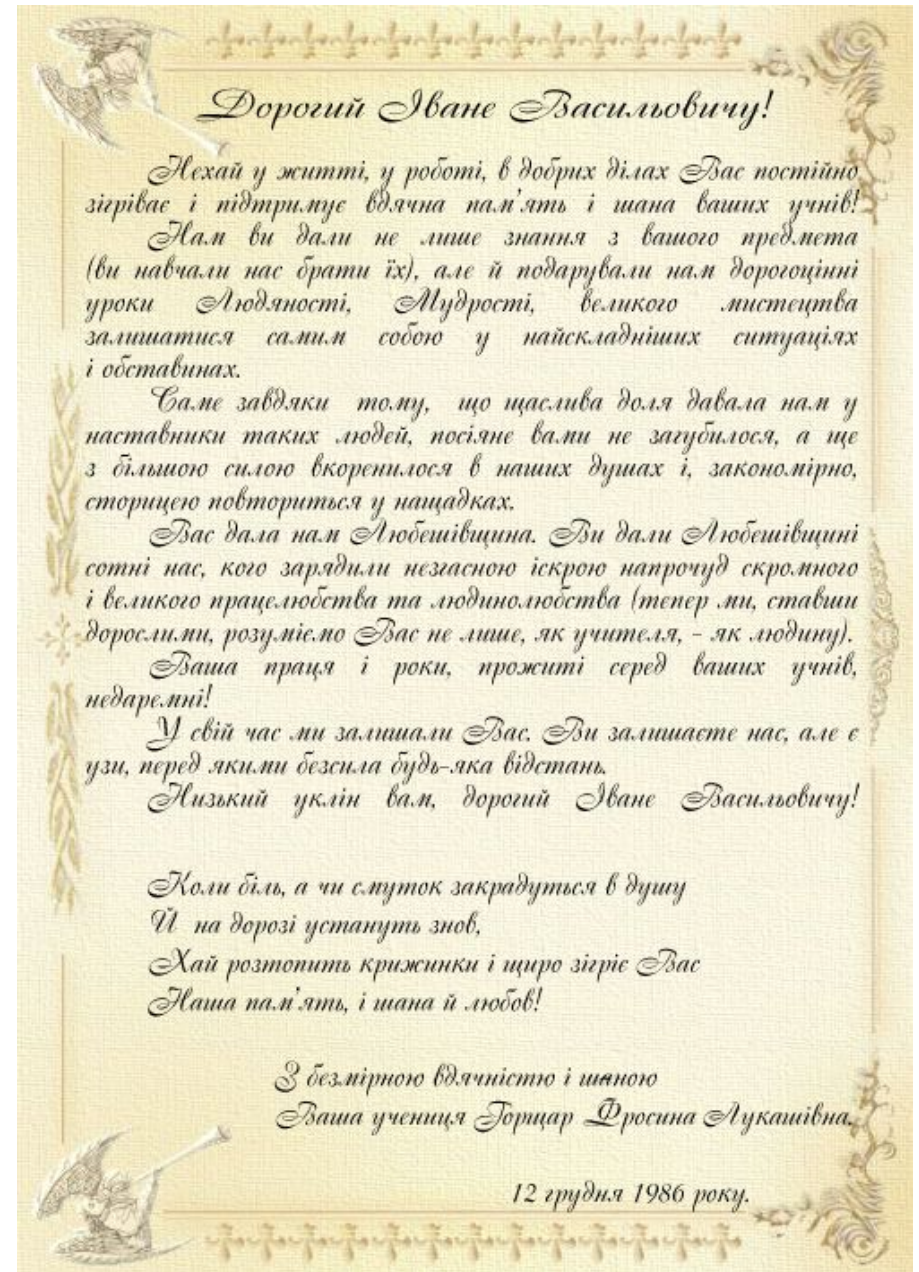 Дорогий Іване Васильовичу!
Нехай у житті, у роботі, в добрих ділах Вас постійно
зігріває і підтримує вдячна пам'ять і шана ваших учнів!
Нам ви дали не лише знання з вашого предмета
(ви навчали нас брати їх), але й подарували нам дорогоцінні
уроки Людяності, Мудрості, великого мистецтва
залишатися самим собою у найскладніших ситуаціях
і обставинах.
Саме завдяки тому, що щаслива доля давала нам у
наставники таких людей, посіяне вами не загубилося, а ще
з більшою силою вкоренилося в наших душах і, закономірно,
сторицею повториться у нащадках.
Вас дала нам Любешівщина. Ви дали Любешівщині
сотні нас, кого зарядили незгасною іскрою напрочуд скромного
і великого працелюбства та людинолюбства (тепер ми, ставши
дорослими, розуміємо Вас не лише, як учителя, – як людину).
Ваша праця і роки, прожиті серед ваших учнів,
недаремні!
У свій час ми залишали Вас. Ви залишаєте нас, але є
узи, перед якими безсила будь-яка відстань.
Низький уклін вам, дорогий Іване Васильовичу!
Коли біль, а чи смуток закрадуться в душу
Й на дорозі устануть знов,
Хай розтопить крижинки і щиро зігріє Вас
Наша пам'ять, і шана й любов!
З безмірною вдячністю і шаною
Ваша учениця Горщар Фросина Лукашівна.
12 грудня 1986 року.